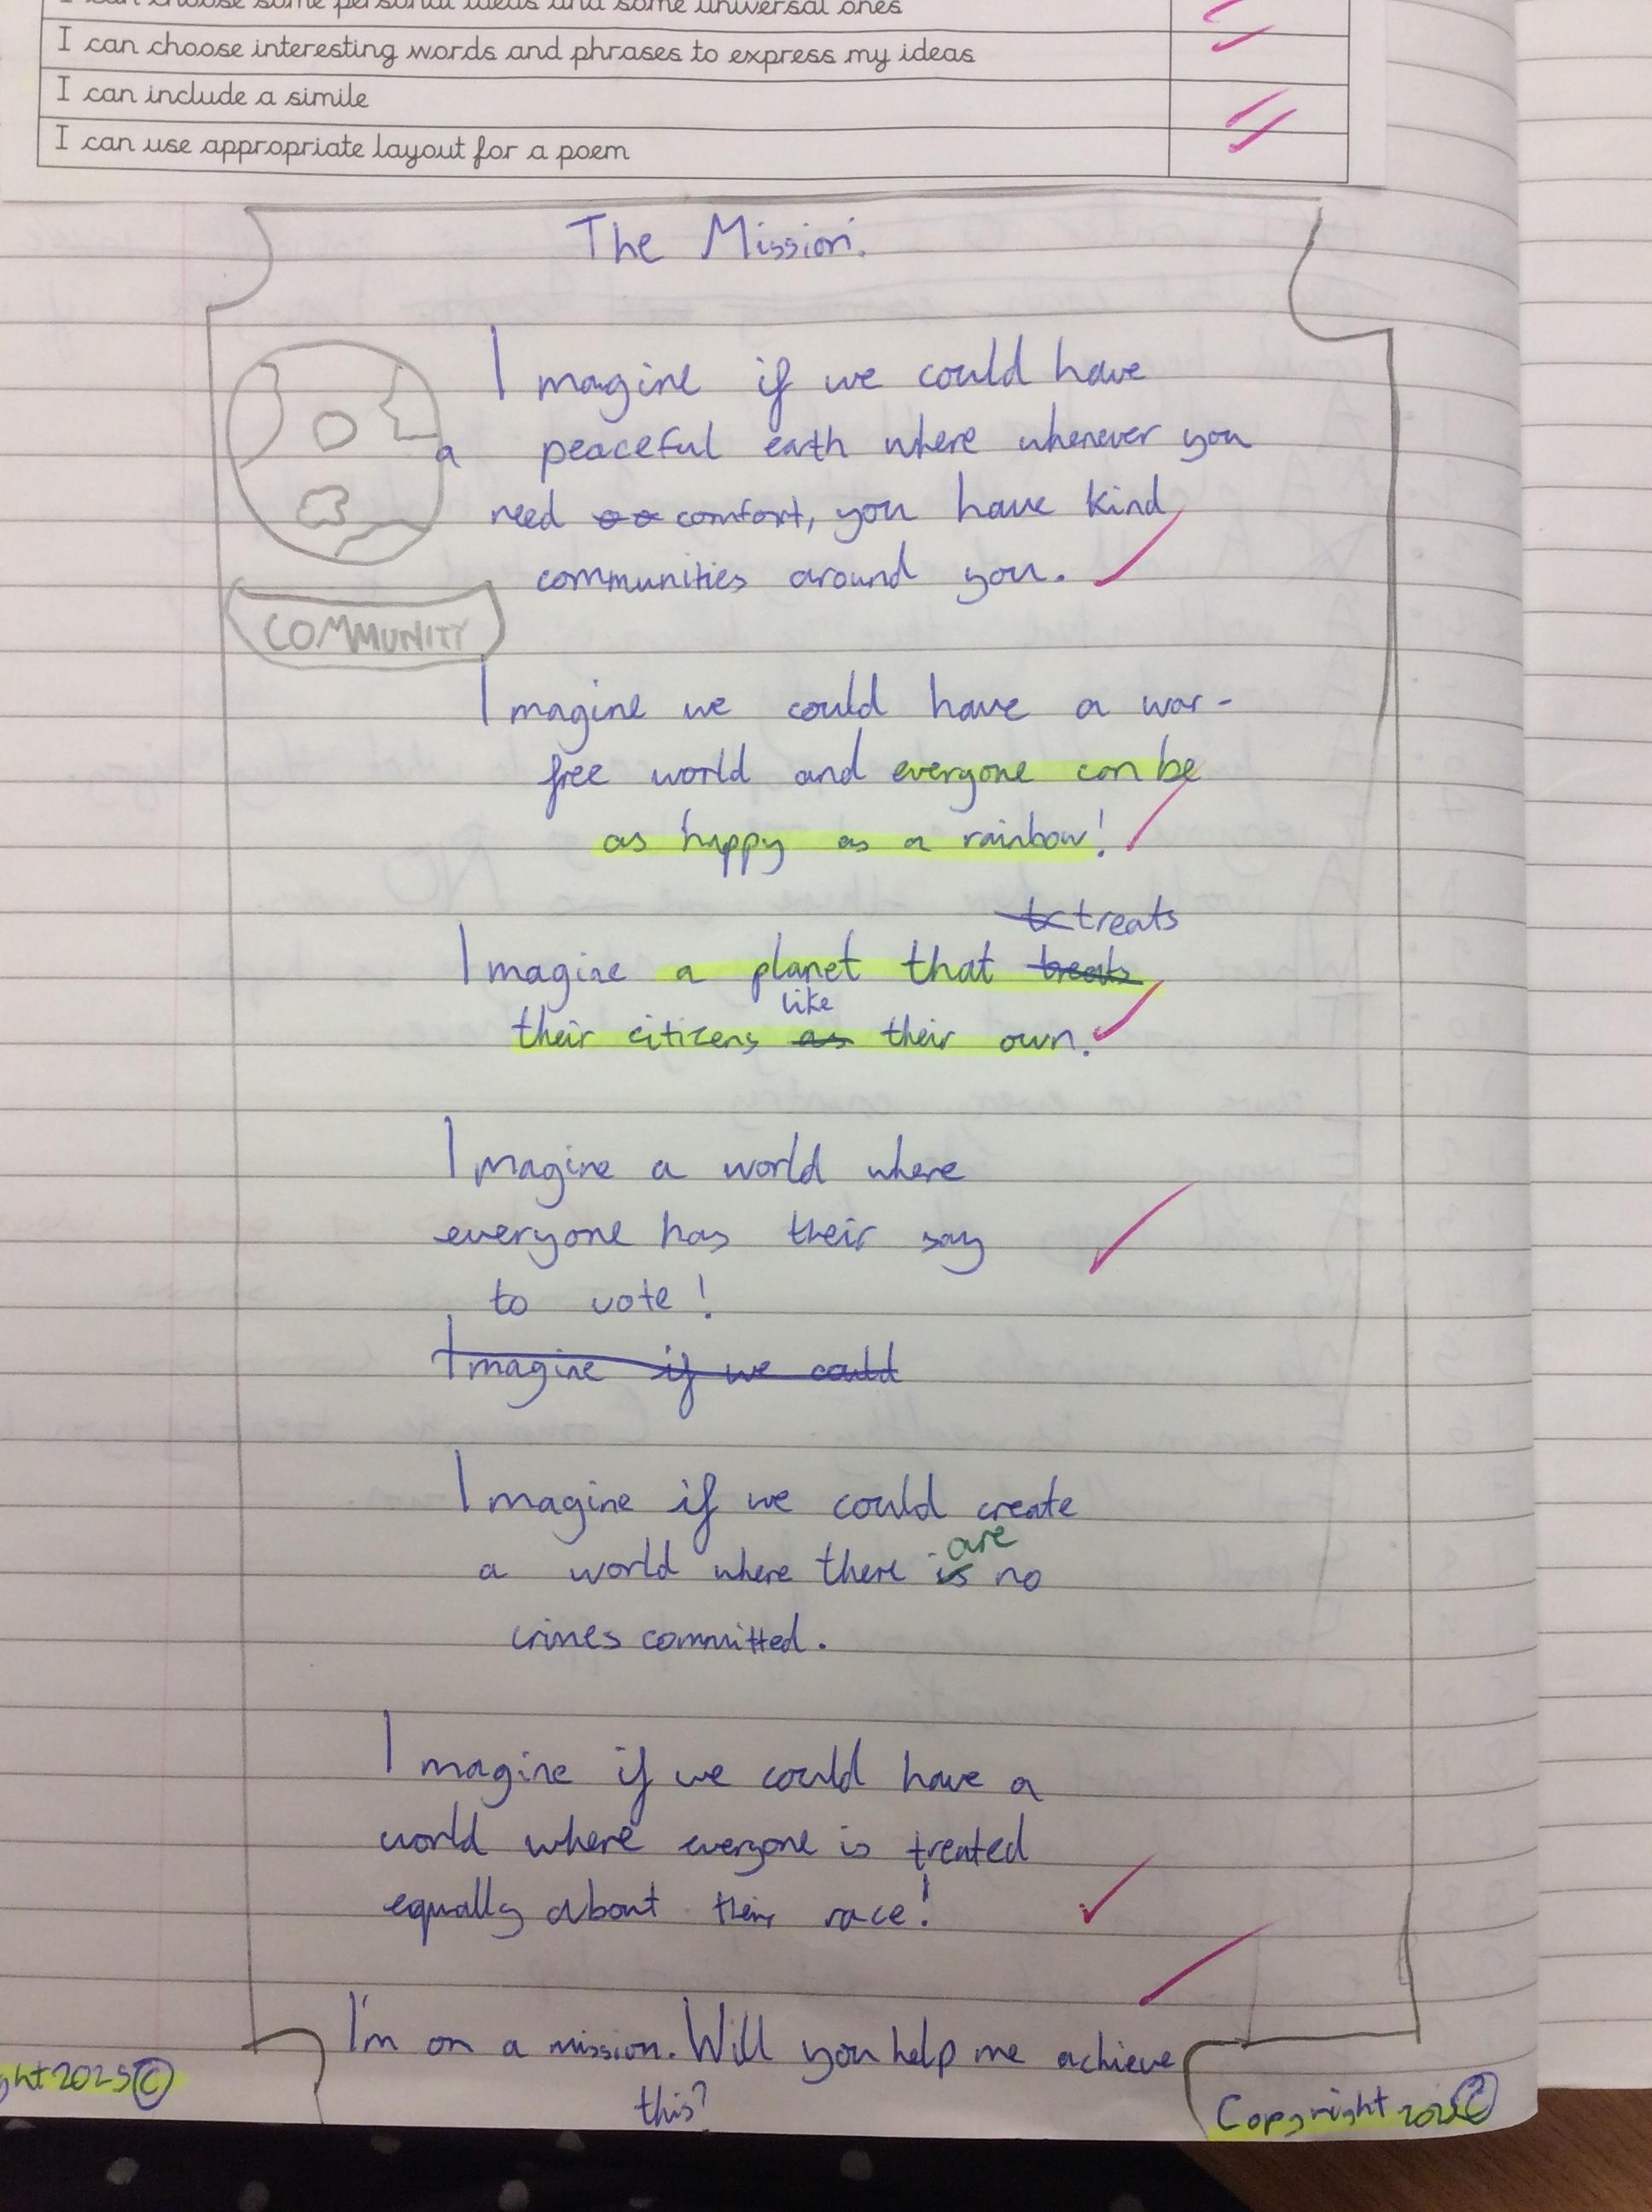 I can choose some personal ideas and some universal ones
I can choose interesting words and phrases to express my ideas
I can include a simile
I can use appropriate layout for a poem
The Mission.
Imagine if we could have
a peaceful earth where whenever you
need comfort, you have kind
communities around you.
COMMUNITY
Imagine we could have a war-
free world and everyone can be
as happy as a rainbow!
treats
Imagine a planet that treats
like
their citizens as their own.
Imagine a world where
everyone has their say
to vote!
Imagine if we could
Imagine if we could create
are
a world where there is no
crimes committed.
Imagine if we could have a
world where everyone is treated
equally about their race!
I'm on a mission. Will you help me achieve
this?
ght 2025 ©
Copyright ©